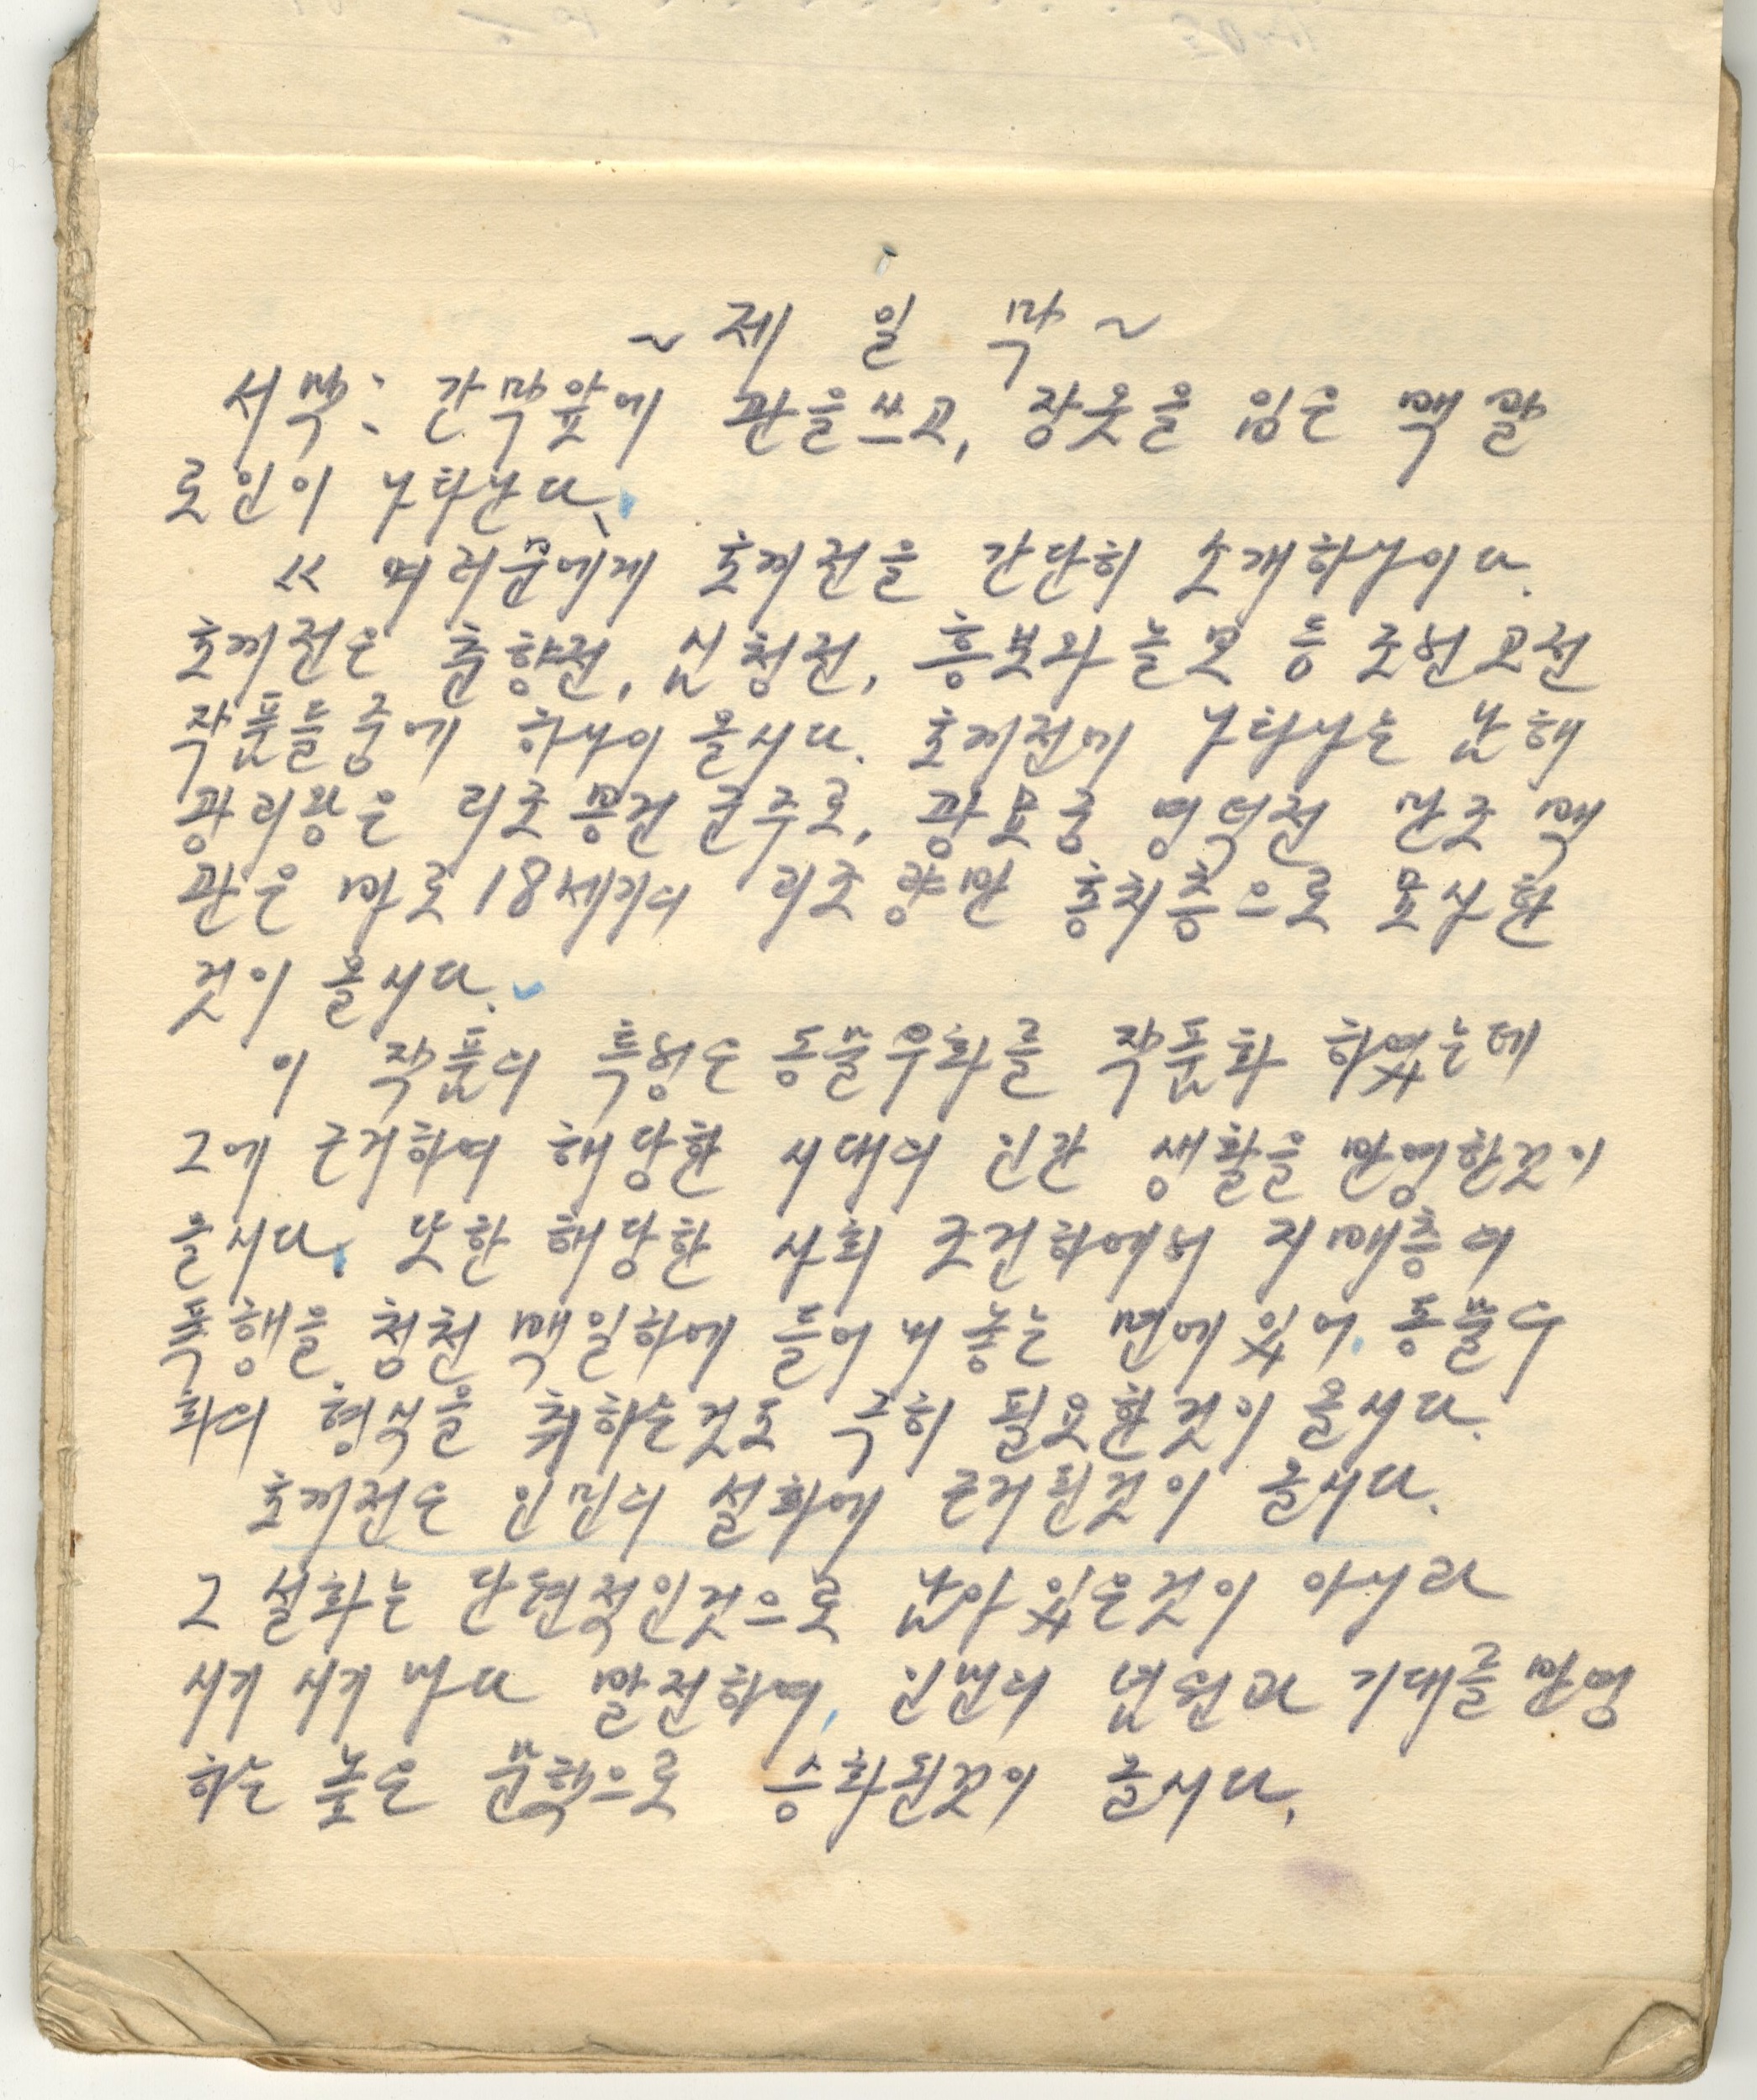 ~ 제 일 막 ~
서막: 간막앞에 관을쓰고, 장옷을 입은 백발
로인이 나타난다.
《 여러분에게 토끼전을 간단히 소개하나이다.
토끼전은 춘향전, 심청전, 흥보와놀보 등 조선고전
작품들중에 하나이올시다. 토끼전에 나타나는 남해
광리왕은 리조봉건군주로, 광모궁 명덕전 만조백
관은 바로 18세기의 리조량반 통치층으로 묘사한
것이 올시다.
이 작품의 특성은 동물우화를 작품화 하였는데
그에 근거하여 해당한 시대의 인간 생활을 반영한것이
올시다. 또한 해당한 사회 조건하에서 지배층의
폭행을 청천 백일하에 들어 내놓는 면에 있어. 동물우
화의 형식을 취하는것도 극히 필요한것이 올시다.
토끼전은 인민의 설화에 근거된것이 올시다.
그 설화는 단편적인것으로 남아 있은것이 아니라
세기 세기 마다 발전하여, 인민의 념원과 기대를 반영
하는 높은 문학으로 승화된것이 올시다.